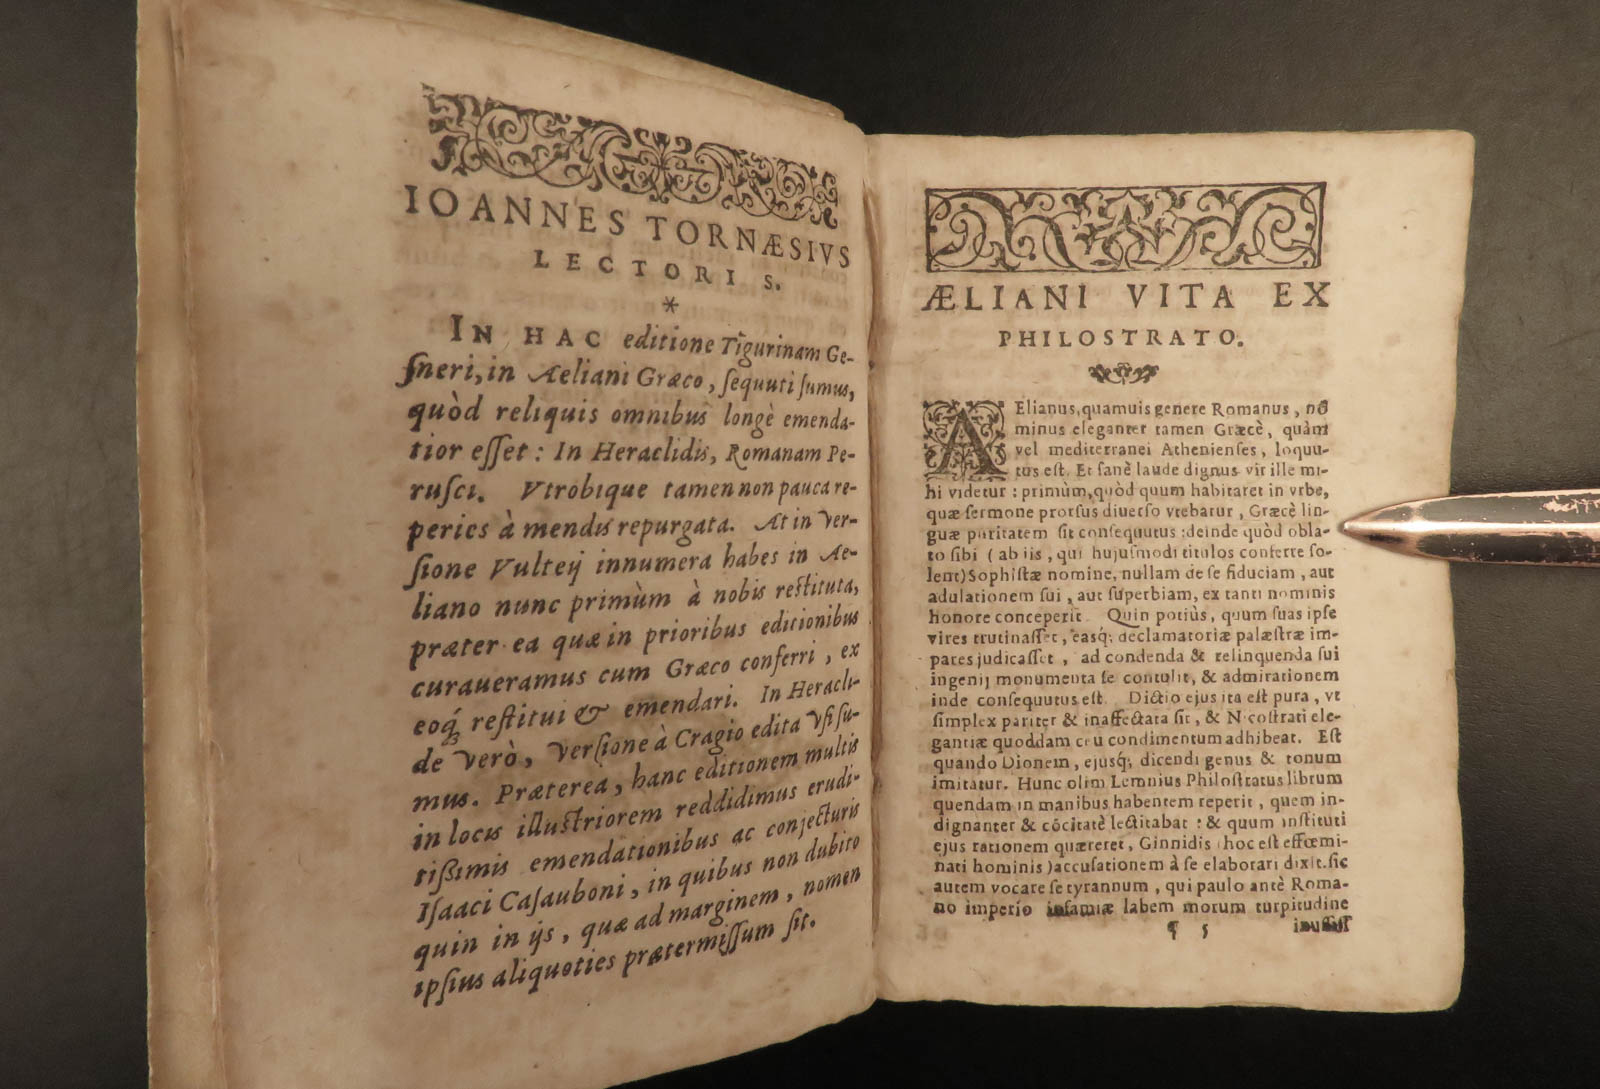 IOANNES TORNÆSIVS
LECTORI S.
*
IN HAC editione Tigurinam Ge-
ſneri, in Aeliani Græco, ſequuti ſumus,
quòd reliquis omnibus longè emenda-
tior eſſet: In Heraclidis, Romanam Pe-
ruſci. Vtrobique tamen non pauca re-
peries à mendis repurgata. At in ver-
ſione Vulteij innumera habes in Ae-
liano nunc primùm à nobis reſtituta,
præter ea quæ in prioribus editionibus
curaueramus cum Græco conferri, ex
eoq́; reſtitui & emendari. In Heracli-
de verò, verſione à Cragio edita vſi ſu-
mus. Præterea, hanc editionem multis
in locis illuſtriorem reddidimus erudi-
tiſsimis emendationibus ac conjecturis
Iſaaci Caſauboni, in quibus non dubito
quin in ijs, quæ ad marginem, nomen
ipſius aliquoties prætermiſſum ſit.
ÆLIANI VITA EX
PHILOSTRATO.
AElianus, quamuis genere Romanus, nõ
minus eleganter tamen Græcè, quàm
vel mediterranei Athenienſes, loquu-
tus eſt. Et ſanè laude dignus vir ille mi-
hi videtur: primùm, quòd quum habitaret in vrbe,
quæ ſermone prorſus diuerſo vtebatur, Græcè lin-
guæ puritatem ſit conſequutus: deinde quòd obla-
to ſibi (ab iis, qui hujuſmodi titulos conferre ſo-
lent) Sophiſtæ nomine, nullam de ſe fiduciam, aut
adulationem ſui, aut ſuperbiam, ex tanti nominis
honore conceperit. Quin potiùs, quum ſuas ipſe
vires trutinaſſet, easq́; declamatoriæ palæſtræ im-
pares judicaſſet, ad condenda & relinquenda ſui
ingenij monumenta ſe contulit, & admirationem
inde conſequutus eſt. Dictio ejus ita eſt pura, vt
ſimplex pariter & inaffectata ſit, & Nicoſtrati ele-
gantiæ quoddam ceu condimentum adhibeat. Eſt
quando Dionem, ejusq́; dicendi genus & tonum
imitatur. Hunc olim Lemnius Philoſtratus librum
quendam in manibus habentem reperit, quem in-
dignanter & cõcitatè lectitabat: & quum inſtituti
ejus rationem quæreret, Ginnidis (hoc eſt effœmi-
nati hominis) accuſationem à ſe elaborari dixit. ſic
autem vocare ſe tyrannum, qui paulo antè Roma-
no imperio infamiæ labem morum turpitudine
¶ 5